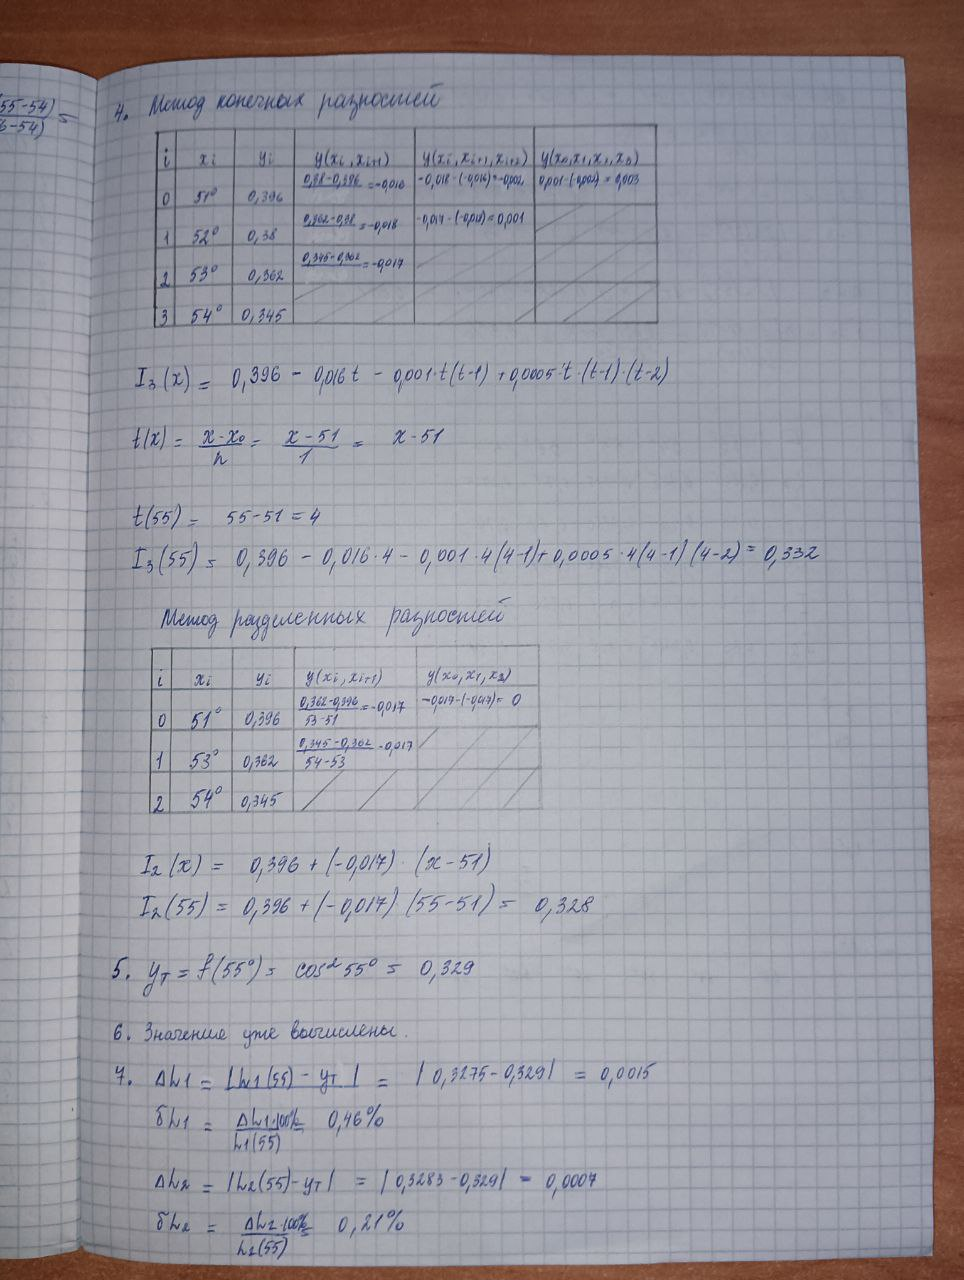 (55-54)
6-54) =
4. Метод конечных разностей
i xi yi y(xi, xi+1) y(xi, xi+1, xi+2) y(x0,x1,x2,x3)
0 51° 0,396 0,38-0,396 = -0,016 -0,018-(-0,016)=-0,002 0,001-(-0,002)=0,003
1 52° 0,38 0,362-0,38 = -0,018 -0,017-(-0,018)=0,001
2 53° 0,362 0,345-0,362 = -0,017
3 54° 0,345
I3(x) = 0,396 - 0,016t - 0,001·t(t-1) + 0,0005·t·(t-1)·(t-2)
t(x) = x-x0 / h = x-51 / 1 = x-51
t(55) = 55-51 = 4
I3(55) = 0,396 - 0,016·4 - 0,001·4(4-1)+0,0005·4(4-1)(4-2) = 0,332
Метод разделенных разностей
i xi yi y(xi, xi+1) y(x0,x1,x2)
0 51° 0,396 0,362-0,396 / 53-51 = -0,017 -0,017-(-0,017)= 0
1 53° 0,362 0,345-0,362 / 54-53 -0,017
2 54° 0,345
I2(x) = 0,396 + (-0,017)·(x-51)
I2(55) = 0,396 + (-0,017)·(55-51) = 0,328
5. yт = f(55°) = cos² 55° = 0,329
6. Значения уже вычислены.
7. ΔL1 = |L1(55) - yт| = |0,3275-0,329| = 0,0015
δL1 = ΔL1·100% / L1(55) = 0,46%
ΔL2 = |L2(55)-yт| = |0,3283-0,329| = 0,0007
δL2 = ΔL2·100% / L2(55) = 0,21%